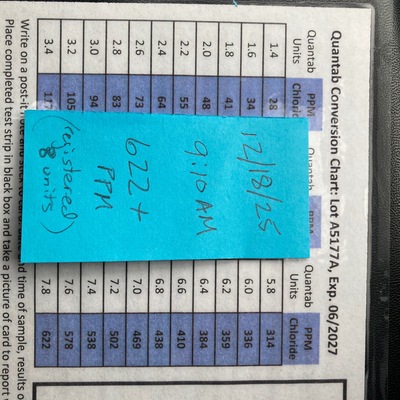 Quantab Conversion Chart: Lot A5177A, Exp. 06/2027
Quantab PPM Quantab PPM Quantab PPM
Units Chloric Units Chloride
1.4 28 5.8 314
1.6 34 6.0 336
1.8 41 6.2 359
2.0 48 6.4 384
2.2 55 6.6 410
2.4 64 6.8 438
2.6 73 7.0 469
2.8 83 7.2 502
3.0 94 7.4 538
3.2 105 7.6 578
3.4 117 7.8 622
12/18/25
9:10 AM
622+
PPM
(registered
8 units)
Write on a post-it note and stick to card nd time of sample, results o
Place completed test strip in black box and take a picture of card to report